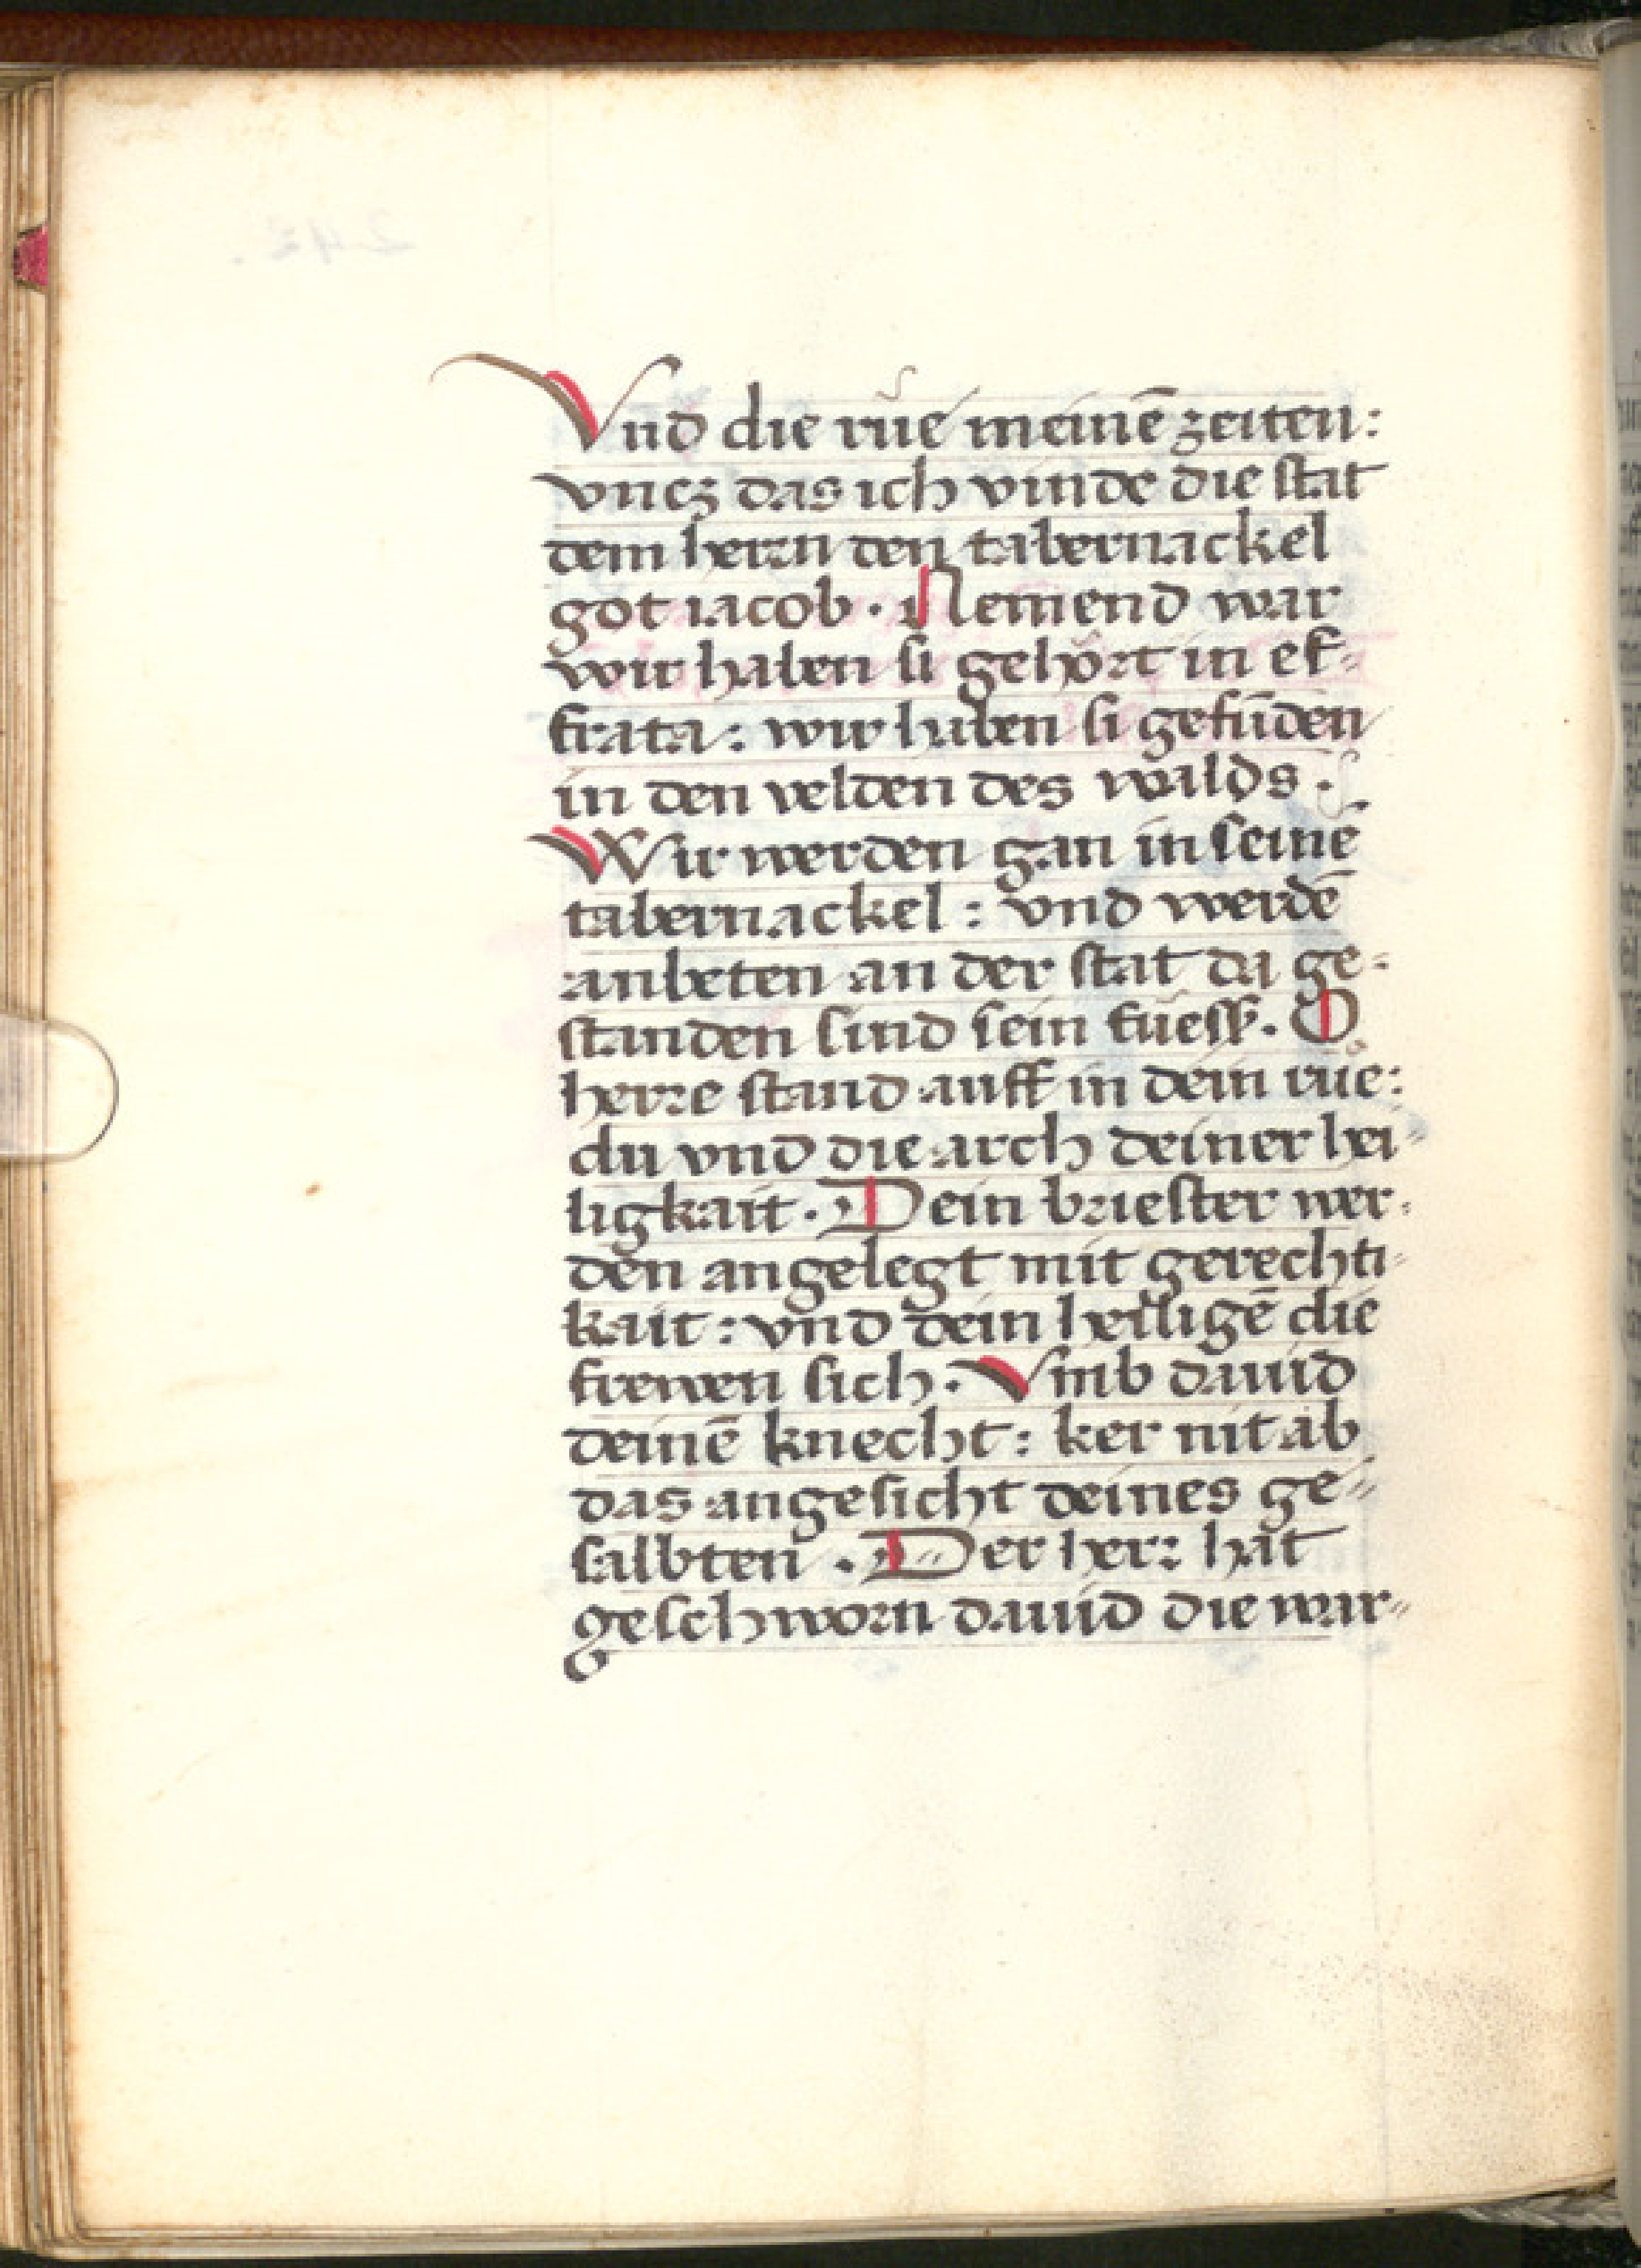 Vnd die růe meinē zeiten:
vncz das ich vinde die stat
dem herrn den tabernackel
got iacob · Nemend war
wir haben si gehört in ef-
frata: wir haben si gefūden
in den velden des walds ·
Wir werden gan in seine
tabernackel: vnd werdē
anbeten an der stat da ge-
standen sind sein fůess. O
herre stand auff in dein růe:
du vnd die arch deiner hei-
ligkait. Dein briester wer-
den angelegt mit gerechti-
kait: vnd dein heiligē die
frewen sich. Vmb dauid
deinē knecht: ker nit ab
das angesicht deines ge-
salbten. Der herr hat
geschworn dauid die war-